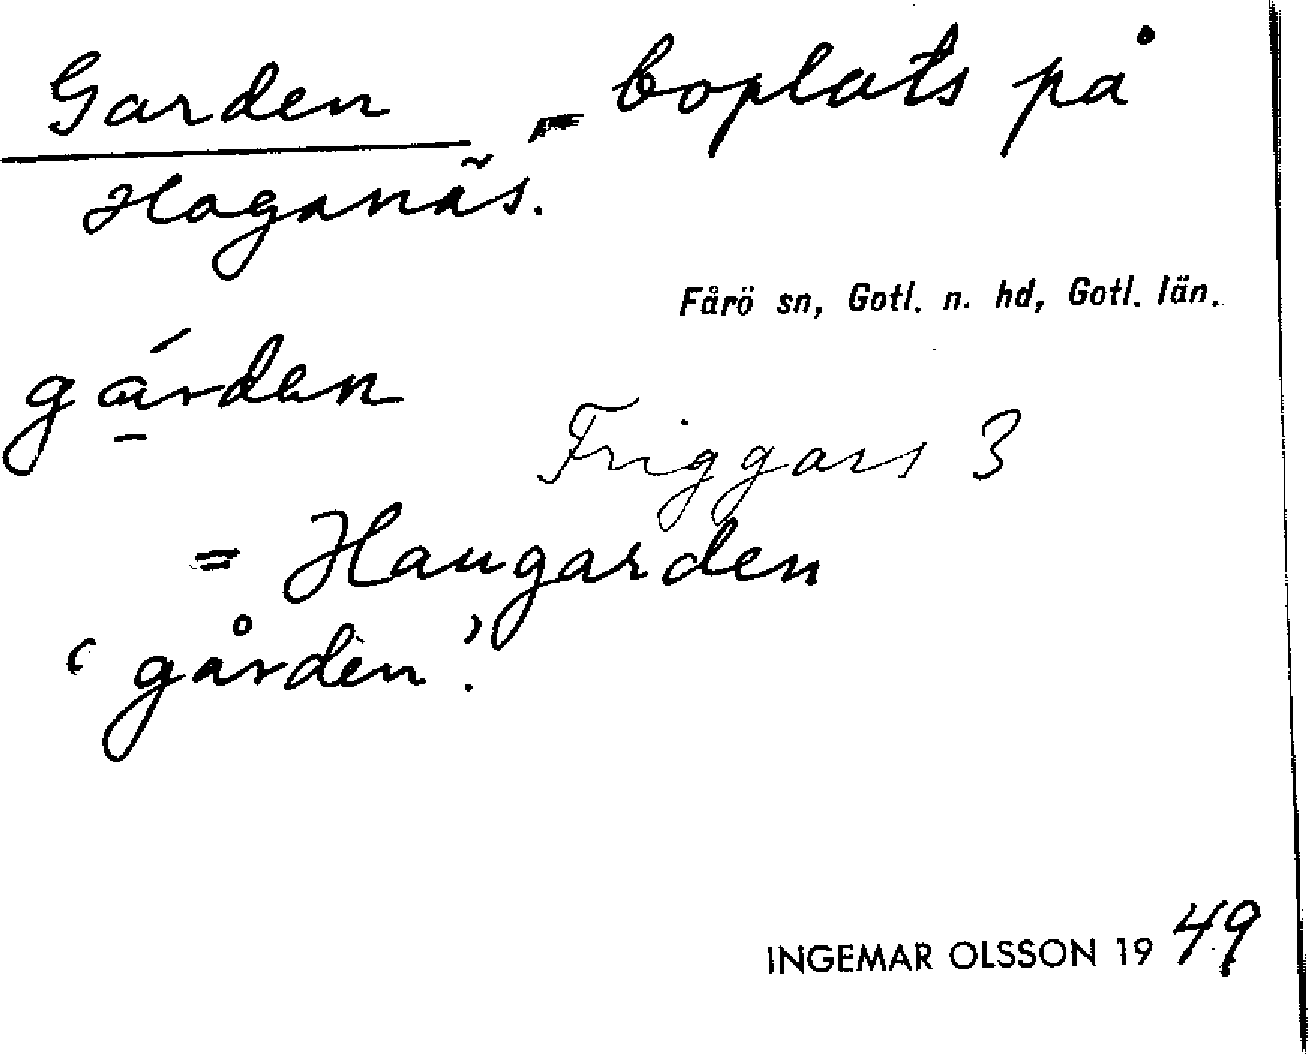 Garden = boplats på
Hoganäs.
Fårö sn, Gotl. n. hd, Gotl. län.
gárden
Friggars 3
= Haugarden
‘gården’.
INGEMAR OLSSON 1949